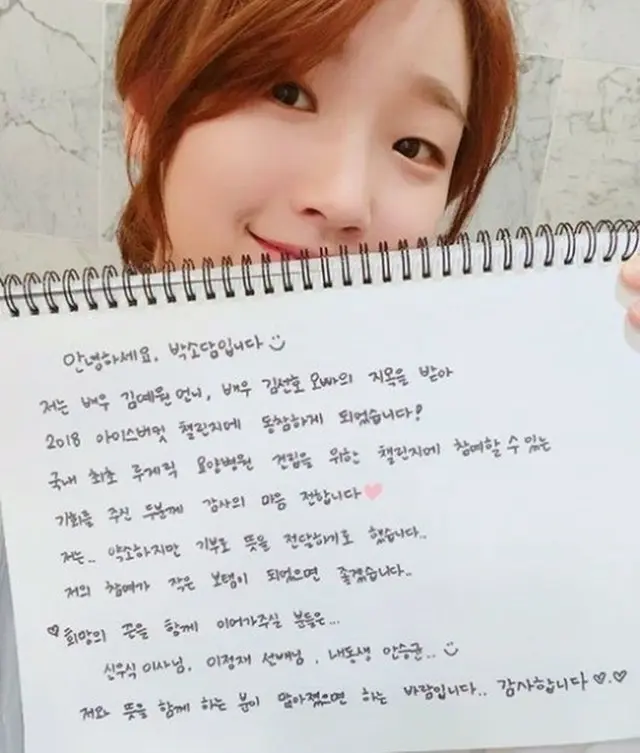 안녕하세요, 박소담입니다 :)
저는 배우 김예원 언니, 배우 김선호 오빠의 지목을 받아
2018 아이스버킷 챌린지에 동참하게 되었습니다!
국내 최초 루게릭 요양병원 건립을 위한 챌린지에 참여할 수 있는
기회를 주신 두분께 감사의 마음 전합니다♥
저는.. 약소하지만 기부로 뜻을 전달하기로 했습니다..
저의 참여가 작은 보탬이 되었으면 좋겠습니다..
♡희망의 끈을 함께 이어가주실 분들은...
신우식 이사님, 이정재 선배님, 내동생 안승균.. :)
저와 뜻을 함께 하는 분이 많아졌으면 하는 바람입니다.. 감사합니다 ♡.♡